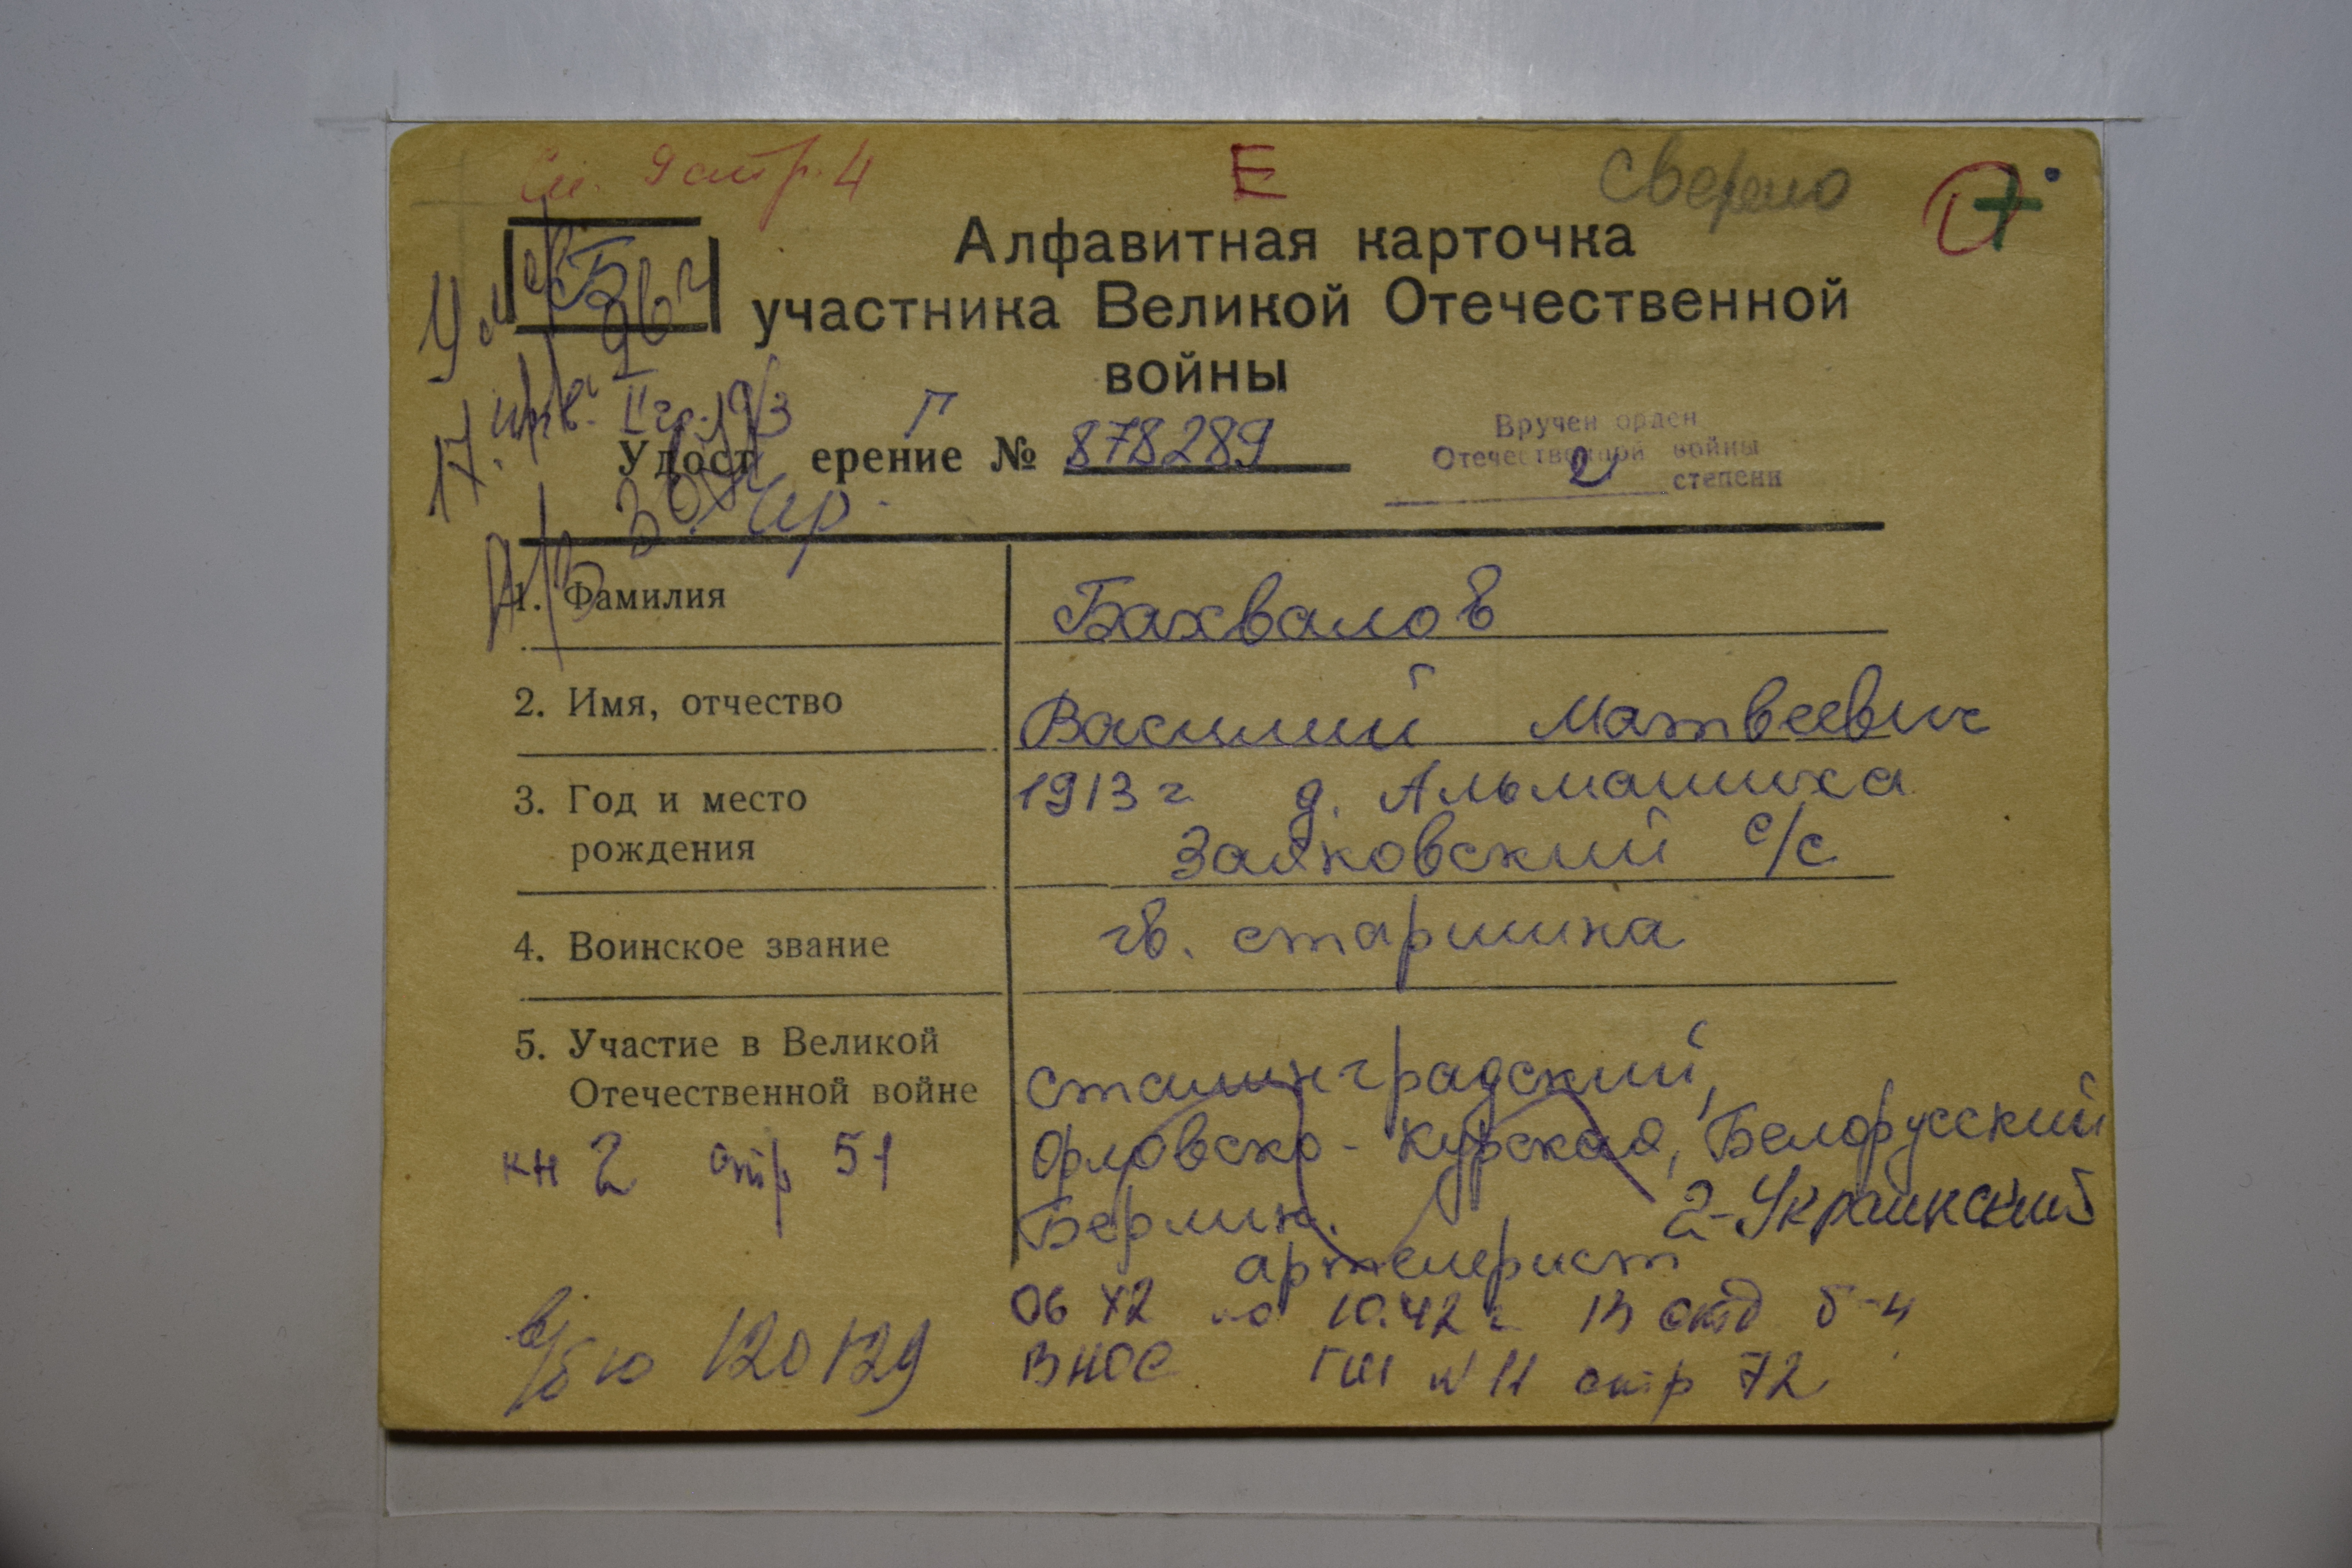 9 стр. 4
Е
сверено
Б
Алфавитная карточка
участника Великой Отечественной
войны
Г
Удост ерение № 878289
Вручен орден
Отечественной войны
2 степени
1. Фамилия
Бахвалов
2. Имя, отчество
Василий Матвеевич
3. Год и место
рождения
1913 г д. Альманиха
Заяковский с/с
4. Воинское звание
гв. старшина
5. Участие в Великой
Отечественной войне
сталинградский,
Орловско-Курская, Белорусский
Берлин. 2-Украинский
артелерист
кн 2 стр 51
06 42 по 10.42 г. 13 отд б-н
ВНОС ГШ N 11 стр 72
в/б ю 120129